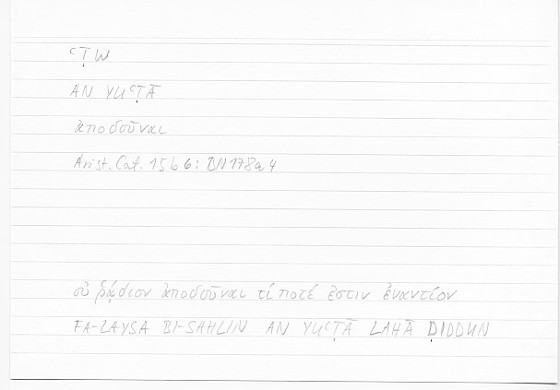 ʿṬW
AN YUʿṬĀ
ἀποδοῦναι
Arist. Cat. 15b6: BN178a4
οὐ ῥᾴδιον ἀποδοῦναι τί ποτέ ἐστιν ἐναντίον
FA-LAYSA BI-SAHLIN AN YUʿṬĀ LAHĀ ḌIDDUN